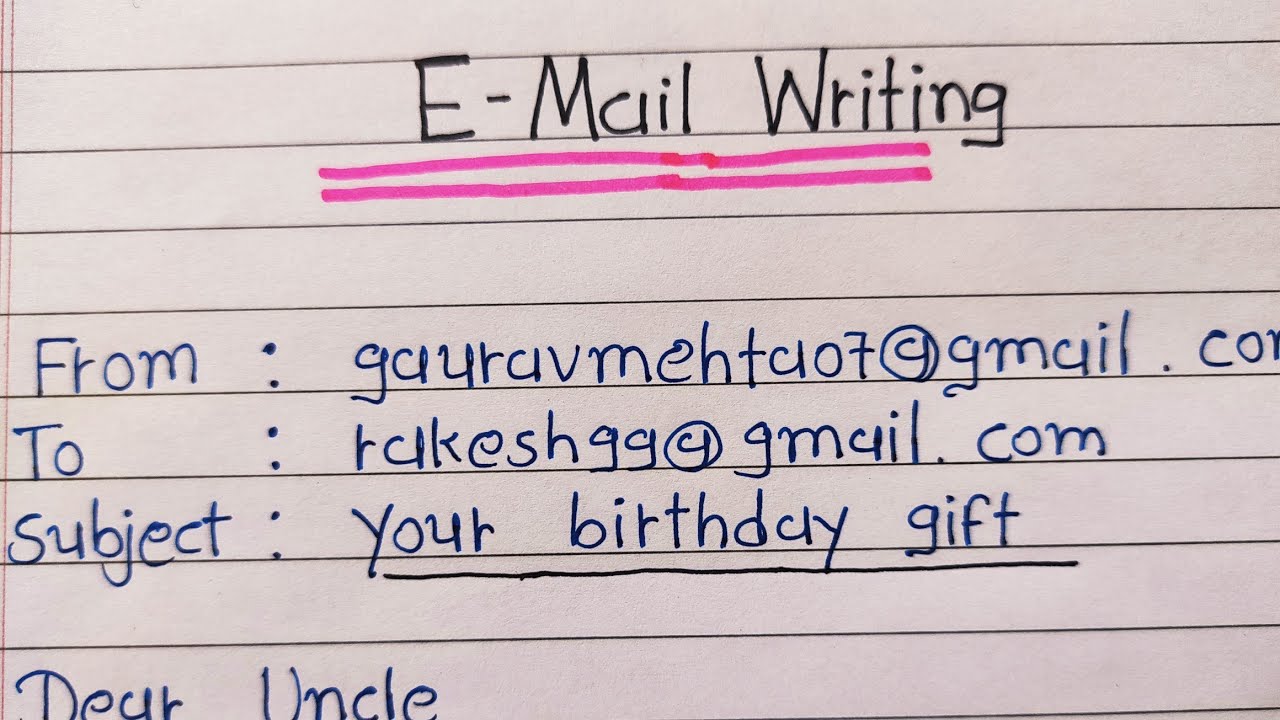 E-Mail Writing
From : gauravmehta07@gmail.com
To : rakesh99@gmail.com
Subject : your birthday gift
Dear Uncle